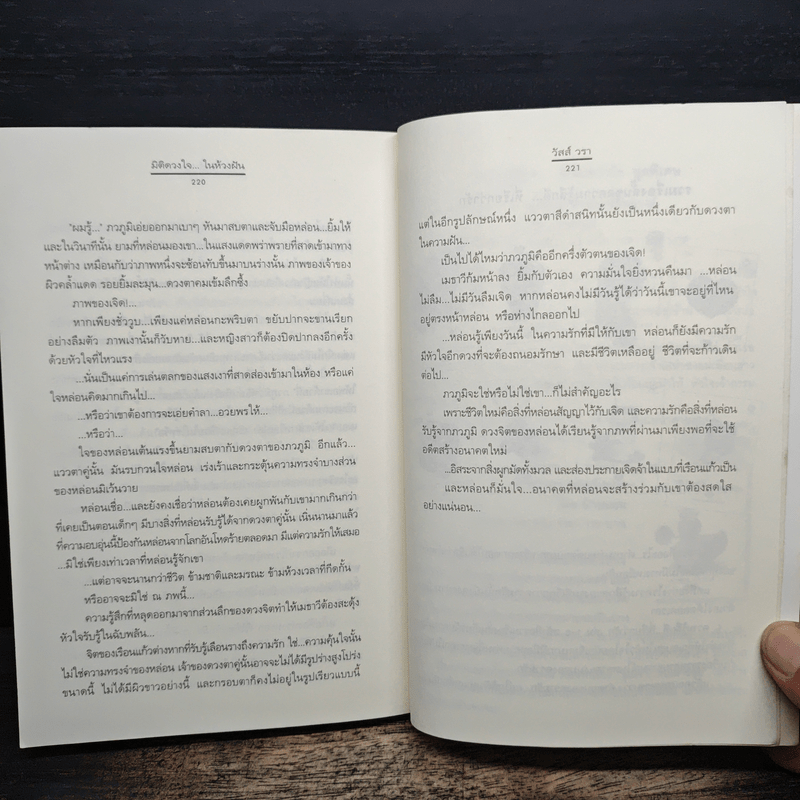 มิติดวงใจ... ในห้วงฝัน
220
"ผมรู้..." ภวภูมิเอ่ยออกมาเบาๆ หันมาสบตาและจับมือหล่อน...ยิ้มให้
และในวินาทีนั้น ยามที่หล่อนมองเขา...ในแสงแดดพร่าพรายที่สาดเข้ามาทาง
หน้าต่าง เหมือนกับว่าภาพหนึ่งจะซ้อนทับขึ้นมาบนร่างนั้น ภาพของเจ้าของ
ผิวคล้ำแดด รอยยิ้มละมุน...ดวงตาคมเข้มลึกซึ้ง
ภาพของเจิด!
หากเพียงชั่ววูบ...เพียงแค่หล่อนกะพริบตา ขยับปากจะขานเรียก
อย่างลืมตัว ภาพเงานั้นก็วับหาย...และหญิงสาวก็ต้องปิดปากลงอีกครั้ง
ด้วยหัวใจที่ไหวแรง
...นั่นเป็นแค่การเล่นตลกของแสงเงาที่สาดส่องเข้ามาในห้อง หรือแค่
ใจหล่อนคิดมากเกินไป...
...หรือว่าเขาต้องการจะเอ่ยคำลา...อวยพรให้...
...หรือว่า...
ใจของหล่อนเต้นแรงขึ้นยามสบตากับดวงตาของภวภูมิ อีกแล้ว...
แววตาคู่นั้น มันรบกวนใจหล่อน เร่งเร้าและกระตุ้นความทรงจำบางส่วน
ของหล่อนมิเว้นวาย
หล่อนเชื่อ...และยังคงเชื่อว่าหล่อนต้องเคยผูกพันกับเขามากเกินกว่า
ที่เคยเป็นตอนเด็กๆ มีบางสิ่งที่หล่อนรับรู้ได้จากดวงตาคู่นั้น เนิ่นนานมาแล้ว
ที่ความอบอุ่นนี้ป้องกันหล่อนจากโลกอันโหดร้ายตลอดมา มีแต่ความรักให้เสมอ
...มิใช่เพียงเท่าเวลาที่หล่อนรู้จักเขา
...แต่อาจจะนานกว่าชีวิต ข้ามชาติและมรณะ ข้ามห้วงเวลาที่กีดกั้น
หรืออาจจะมิใช่ ณ ภพนี้...
ความรู้สึกที่หลุดออกมาจากส่วนลึกของดวงจิตทำให้เมธาวีต้องสะดุ้ง
หัวใจรับรู้ในฉับพลัน...
จิตของเรือนแก้วต่างหากที่รับรู้เลือนรางถึงความรัก ใช่...ความคุ้นใจนั้น
ไม่ใช่ความทรงจำของหล่อน เจ้าของดวงตาคู่นั้นอาจจะไม่ได้มีรูปร่างสูงโปร่ง
ขนาดนี้ ไม่ได้มีผิวขาวอย่างนี้ และกรอบตาก็คงไม่อยู่ในรูปเรียวแบบนี้
วัสส์ วรา
221
แต่ในอีกรูปลักษณ์หนึ่ง แววตาสีดำสนิทนั้นยังเป็นหนึ่งเดียวกับดวงตา
ในความฝัน...
เป็นไปได้ไหมว่าภวภูมิคืออีกครึ่งตัวตนของเจิด!
เมธาวีก้มหน้าลง ยิ้มกับตัวเอง ความมั่นใจยิ่งหวนคืนมา ...หล่อน
ไม่ลืม...ไม่มีวันลืมเจิด หากหล่อนคงไม่มีวันรู้ได้ว่าวันนี้เขาจะอยู่ที่ไหน
อยู่ตรงหน้าหล่อน หรือห่างไกลออกไป
...หล่อนรู้เพียงวันนี้ ในความรักที่มีให้กับเขา หล่อนก็ยังมีความรัก
มีหัวใจอีกดวงที่จะต้องถนอมรักษา และมีชีวิตเหลืออยู่ ชีวิตที่จะก้าวเดิน
ต่อไป...
ภวภูมิจะใช่หรือไม่ใช่เขา...ก็ไม่สำคัญอะไร
เพราะชีวิตใหม่คือสิ่งที่หล่อนสัญญาไว้กับเจิด และความรักคือสิ่งที่หล่อน
รับรู้จากภวภูมิ ดวงจิตของหล่อนได้เรียนรู้จากภพที่ผ่านมาเพียงพอที่จะใช้
อดีตสร้างอนาคตใหม่
...อิสระจากสิ่งผูกมัดทั้งมวล และส่องประกายเจิดจ้าในแบบที่เรือนแก้วเป็น
และหล่อนก็มั่นใจ...อนาคตที่หล่อนจะสร้างร่วมกับเขาต้องสดใส
อย่างแน่นอน...